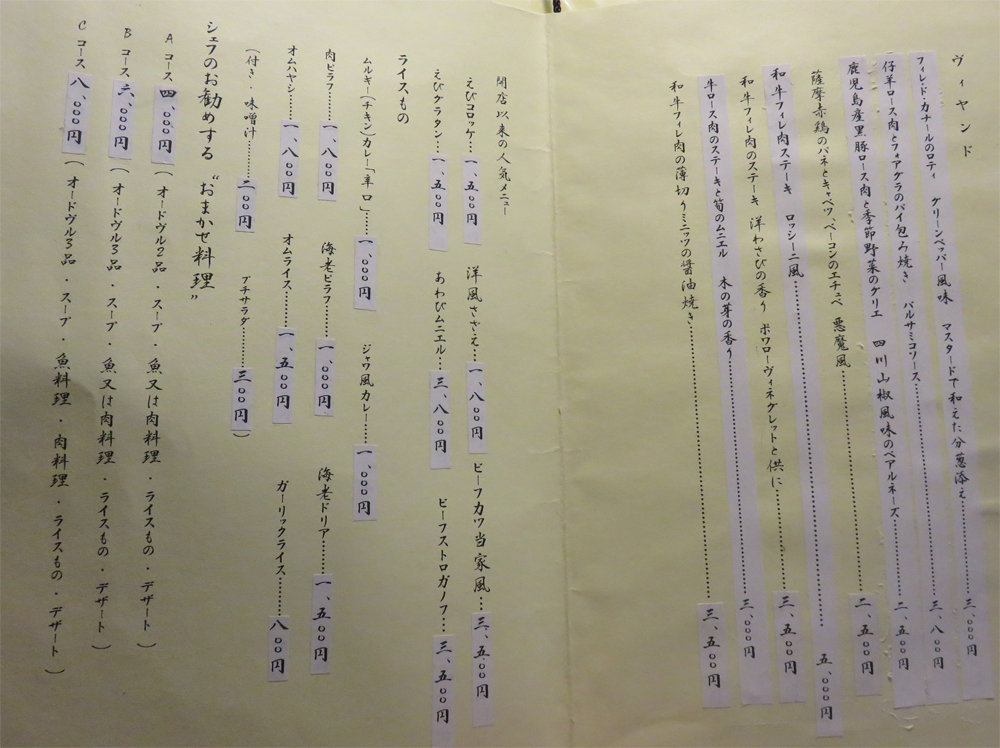 ヴィヤンド
フィレ・ド・カナールのロティ　グリーンペッパー風味　マスタードで和えた分葱添え……三、〇〇〇円
仔羊ロース肉とフォアグラのパイ包み焼き　バルサミコソース……三、八〇〇円
鹿児島産黒豚ロース肉と季節野菜のグリエ　四川山椒風味のベアルネーズ……二、五〇〇円
薩摩赤鶏のパネとキャベツ、ベーコンのエチュベ　悪魔風……二、五〇〇円
和牛フィレ肉ステーキ　ロッシーニ風……五、〇〇〇円
和牛フィレ肉のステーキ　洋わさびの香り　ポワローヴィネグレットと供に……三、五〇〇円
牛ロース肉のステーキと筍のムニエル　木の芽の香り……三、〇〇〇円
和牛フィレ肉の薄切りミニッツの醤油焼き……三、五〇〇円
開店以来の人気メニュー
えびコロッケ……一、五〇〇円　洋風さざえ……一、八〇〇円　ビーフカツ当家風……三、五〇〇円
えびグラタン……一、五〇〇円　あわびムニエル……三、八〇〇円　ビーフストロガノフ……三、五〇〇円
ライスもの
ムルギー(チキン)カレー「辛口」……一、〇〇〇円　ジャワ風カレー……一、〇〇〇円
肉ピラフ……一、八〇〇円　海老ピラフ……一、〇〇〇円　海老ドリア……一、五〇〇円
オムハヤシ……一、八〇〇円　オムライス……一、五〇〇円　ガーリックライス……八〇〇円
(付き・味噌汁……三〇〇円　プチサラダ……三〇〇円)
シェフのお勧めする　"おまかせ料理"
Aコース　四、〇〇〇円　(オードヴル2品・スープ・魚又は肉料理・ライスもの・デザート)
Bコース　六、〇〇〇円　(オードヴル3品・スープ・魚又は肉料理・ライスもの・デザート)
Cコース　八、〇〇〇円　(オードヴル3品・スープ・魚料理・肉料理・ライスもの・デザート)